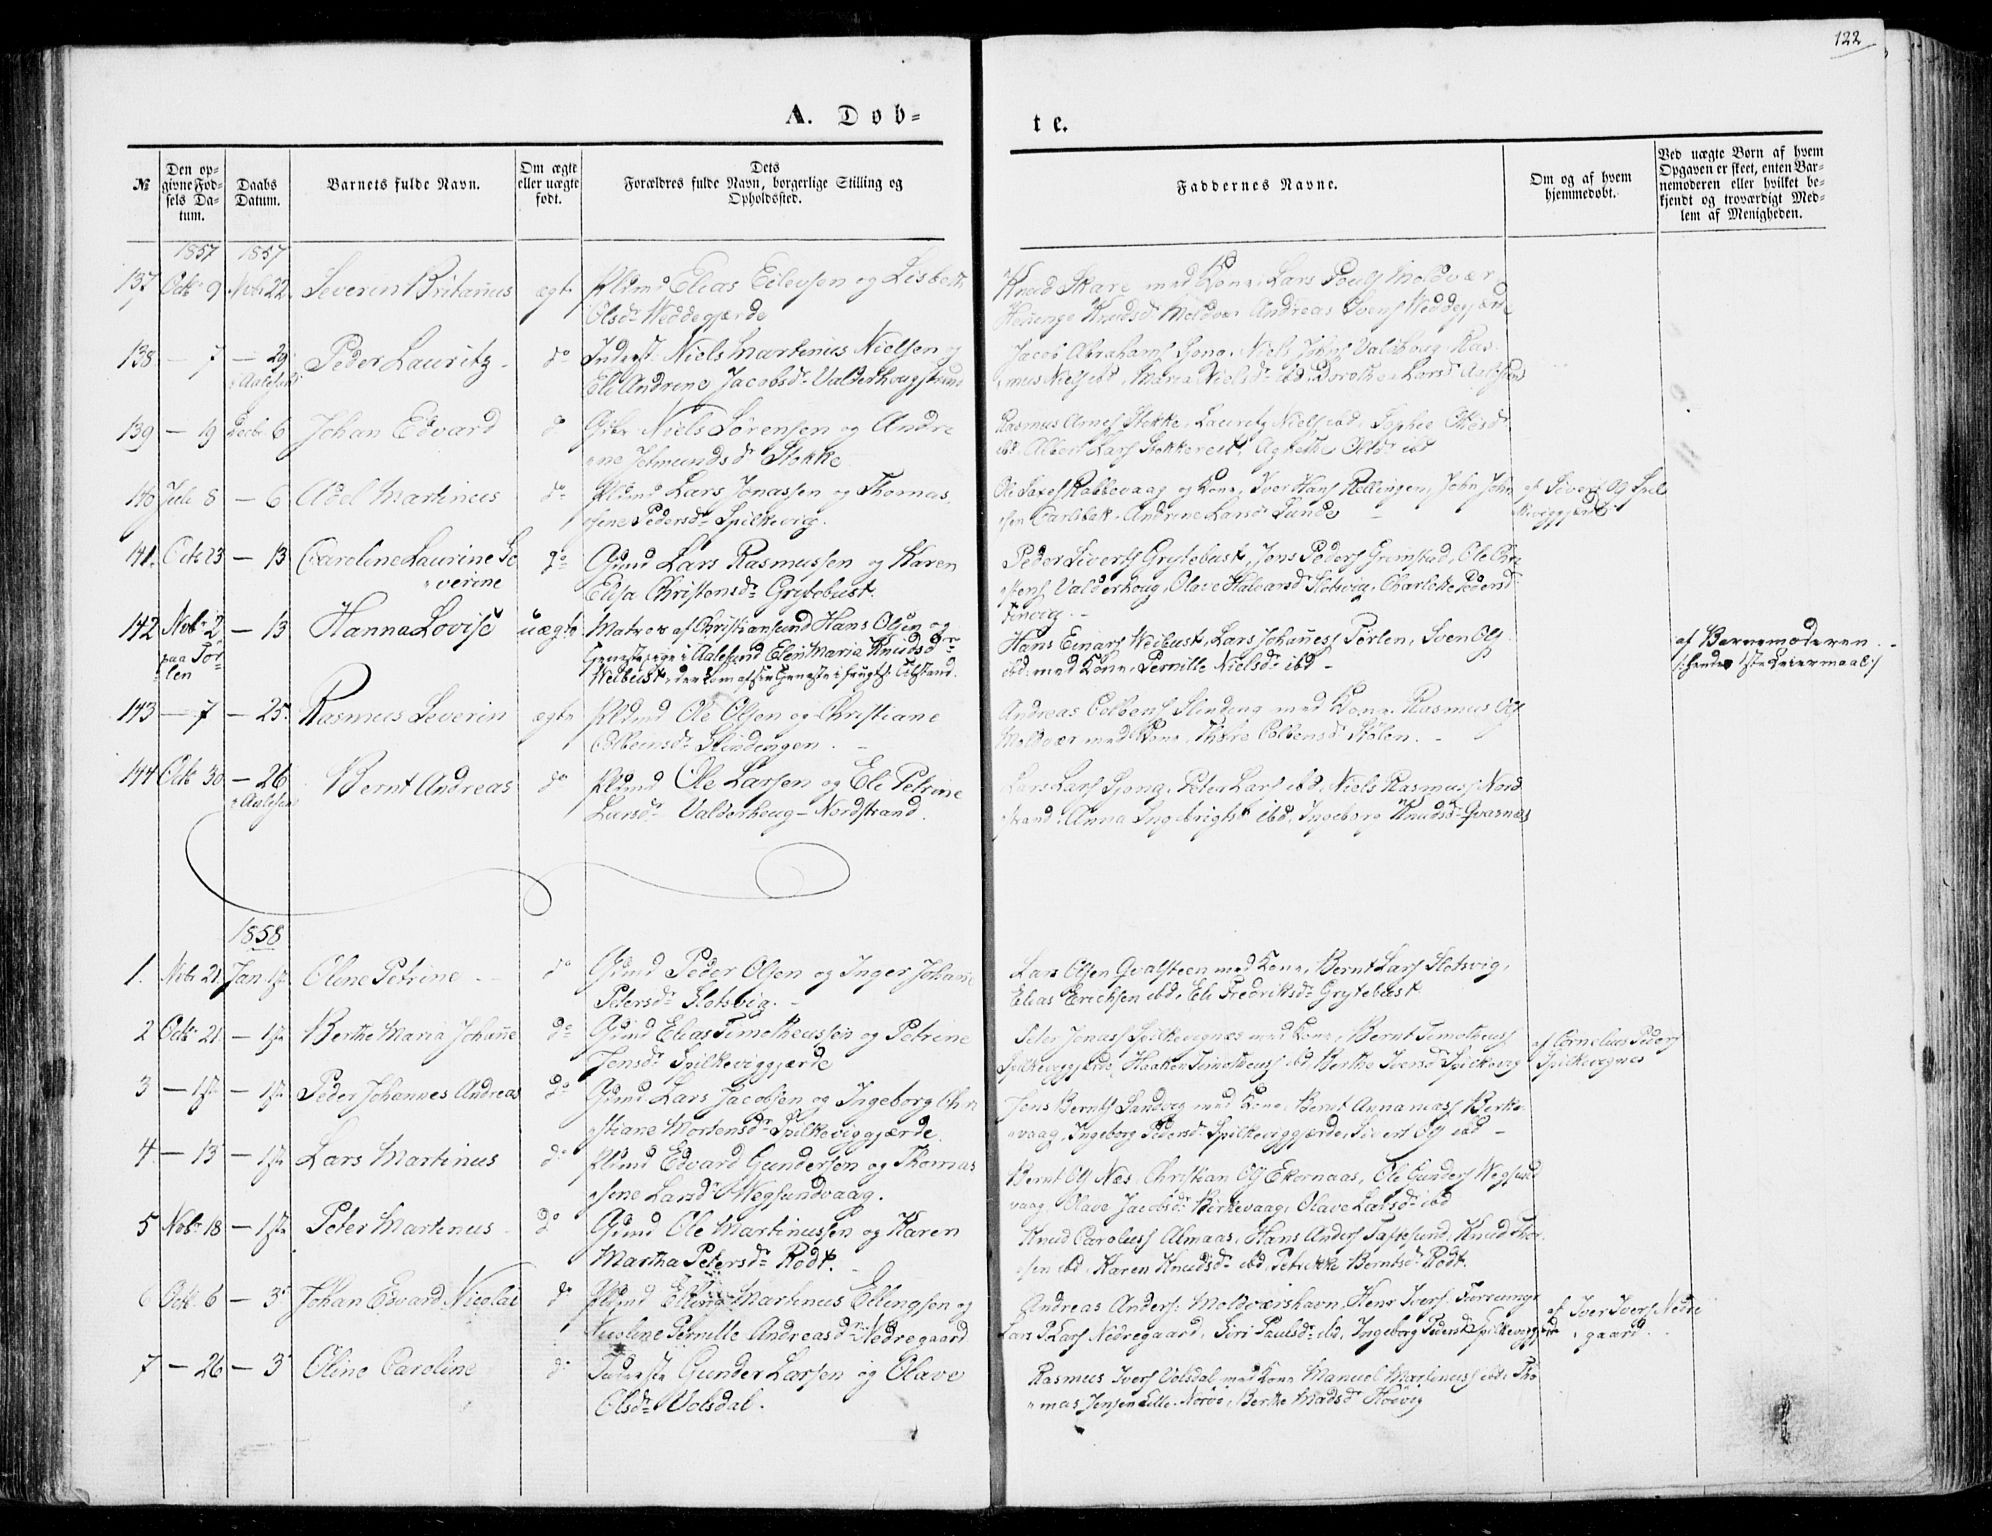 122
A. Døb-
te.
№
Den op-
givne Fød-
sels Da-
tum.
Daabs
Datum.
Barnets fulde Navn.
Om ægte
eller uægte
født.
Dets
Forældres fulde Navn, borgerlige Stilling og
Opholdssted.
Faddernes Navne.
Om og af hvem
hjemmedøbt.
Ved uægte Børn af hvem
Opgaven er skeet, enten Bar-
nemoderen eller hvilket be-
kjendt og troværdigt Med-
lem af Menigheden.
1857 1857
137 Octr 9 Novbr 22 Severin Britanus ægte Plsmd Elias Eilevsen og Lisbeth
Olsdr Weddegjærde
Knud Skare med Kone, Lars Pouls Moldvær
Knudsdr Moldvær Andreas Ivers Weddegjærde
138 — 7 — 29 i Aalesund Peder Lauritz do Inderst Niels Martinus Nielsen og
Eli Andrine Jacobsdr Valderhougstrand
Jacob Abrahams Gjong, Niels Johns Valdhoug, Ras-
mus Niels ibd, Maria Nielsdr ibd, Dorothea Larsdr Aalesund
139 — 19 Decbr 6 Johan Edvard do Gbr Niels Sørensen og Andri
ne Jetmundsdr Stokke
Rasmus Arnes Stokke, Lauritz Niels ibd, Sophie
ibd, Albert Lars Stokkereit, Agnethe Olsdr ibd
140 Juli 8 — 6 Adel Martinus do Plsmd Lars Jonassen og Thomas-
sene Pedersdr Spilkevig.
Ole Rabbevaag og Kone, Iver Hans Rellingen, John John-
sen Carlsbak, Andrine Larsdr Sunde
af Sivert Ols Spil-
keviggjærde
141. Octr 23 — 13 Caroline Laurine Se
verine do Gmd Lars Rasmussen og Karen
Elisa Christensdr Grytebust.
Peder Siverts Grytebust, Jens Peders Grimstad, Ole Chri-
stens Valderhoug, Olave Halvarsdr Flotsvig, Charlotte Pedersdr
142 Novbr 2 paa Tør-
len — 13 Hanna Lovise uægte Matros af Christiansund Hans Olsen og
Tjenestepige i Aalesund Elen Maria Knudsdr
Weibust, der kom af sin Tjeneste i frugts: Tilstand.
Hans Einars Weibust, Lars Johannes Tørlen, Sven Ols
ibd: med Kone, Pernille Nielsdr ibd —
af Barnemoderen.
/: hendes 1ste Leiermaal :/
143 — 7 — 25. Rasmus Severin ægte Plsmd Ole Olsen og Christiane
Colbensdr Slindingen.
Andreas Colbens Slinding med Kone, Rasmus Ols
Moldvær med Kone, Colbensdr Stølen.
144 Octr 30 — 26 i Aalesund Bernt Andreas do Plsmd Ole Larsen og Eli Petrine
Larsdr Valderhoug-Nordstrand.
Lars Lars Gjong, Peter Lars ibd, Niels Rasmus Nord
strand, Anna Ingebrigtsdr ibd, Ingeborg Knudsdr Qvasnæs
1858
1. Novbr 21 Jan 1ste Oline Petrine do Gmd Peder Olsen og Inger Johanne
Petersdr Flotsvig.
Lars Olsen Gvalsteen med Kone, Bernt Lars Flotsvig,
Elias Erichsen ibd, Eli Fredriksdr Grytebust.
2 Octr 21. — 1ste Berthe Maria Johanne do Gmd Elias Timotheussen og Petrine
Jensdr Spilkeviggjærde
Peter Jonas Spilkevignæs med Kone, Bernt Timotheus
Spilkeviggjærde, Haaken Timotheus ibd, Berthe Iversdr Spilkevig
af Cornelius Peders
Spilkevignes
3 — 1ste — 1ste Peder Johannes Andreas do Gmd Lars Jacobsen og Ingeborg Chri
stiane Mortensdr Spilkeviggjærde.
Jens Bernts Sandvig med Kone, Bernt Annanias Berke-
vaag, Ingeborg Pedersdr Spilkeviggjærde, Sivert Ols ibd —
4 — 13 — 1ste Lars Martinus do Plsmd Edvard Gundersen og Thomas
sene Larsdr Wegsundvaag.
Bernt Ols Næs, Christian Ols Ekornaas, Ole Gunders Wegsund
vaag, Olave Jacobsdr Birkevaag, Olave Larsdr ibd
5 Novbr 18 — 1ste Peter Martinus do Gmd Ole Martinussen og Karen
Martha Petersdr Rødt.
Knud Carolus Almaas, Hans Anders Taftesund, Knud Thor
sen ibd, Karen Knudsdr ibd, Petrikke Berntsdr Rødt.
6 Octr 6 — 3 Johan Edvard Nicolai do Plsmd Elling Martinus Ellingsen og
Nicoline Pernille Andreasdr Nedregaard
Andreas Anders: Moldværshavn, Hens Ivers: Furremyr
Lars P Lars Nedregaard, Siri Paulsdr ibd, Ingeborg Pedersdr Spilkeviggjærde
af Iver Ivers Nedre
gaard
7 — 26 — 3 Oline Caroline do Inderste Gunder Larsen og Olave
Olsdr Volsdal.
Rasmus Ivers Volsdal med Kone Manuel Martinus ibd, Tho
mas Jensen Lille-Nørve, Berthe Madsdr Høevig